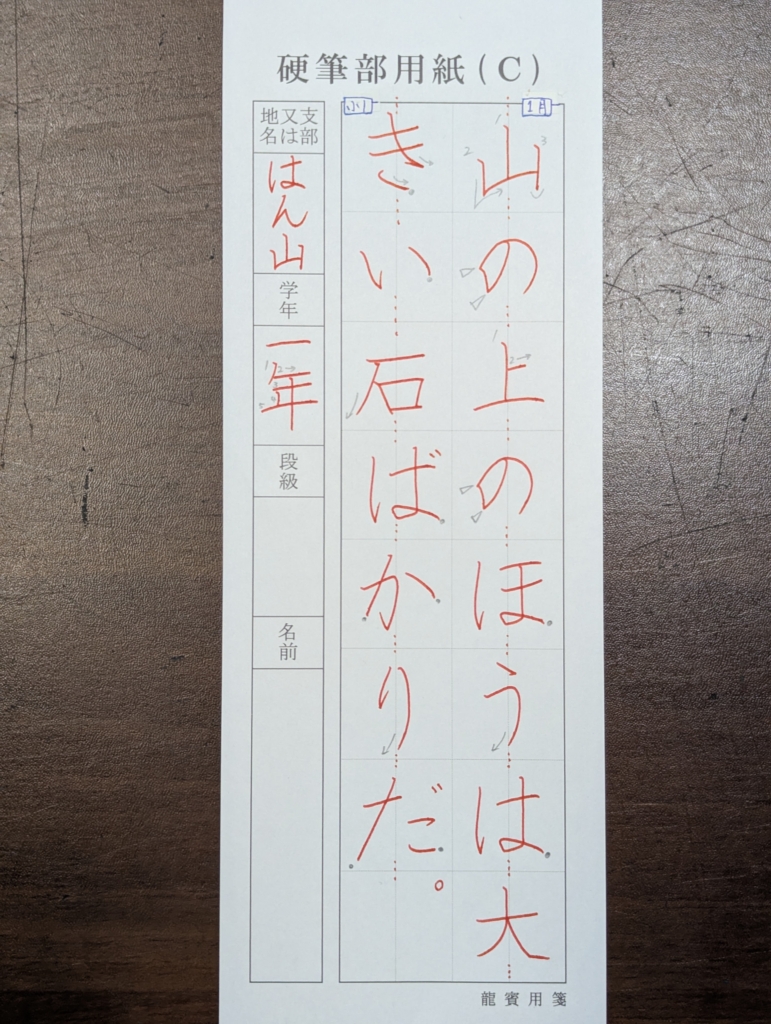 硬筆部用紙(C)
1月
山の上のほうは大
小1
きい石ばかりだ。
支部又は地名
はん山
学年
一年
段級
名前
龍賓用箋